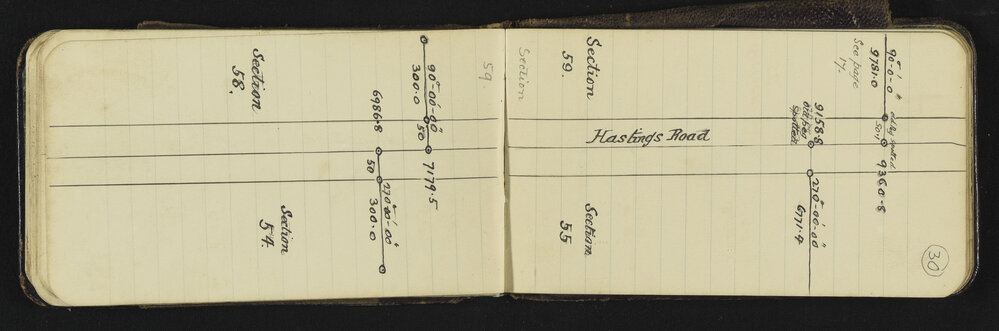 Section
58.
6986.8
50
270°-00'-00"
300.0
Section
54.
90°-00'-00"
300.0
50
7179.5
59.
Section
Section
59.
Hastings Road
Section
55
9158.8
old peg
spotted
270°-00'-00"
6771.4
See page
17.
90°-0'-0"
9781.0
old peg spotted
50
9360.8
30